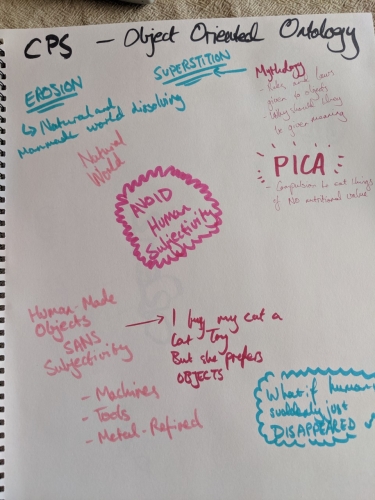 CPS - Object Oriented Ontology
EROSION
↳ Natural and
Manmade world dissolving
SUPERSTITION
Mythology
- Rules and laws
given to objects
- Why should
be given meaning
PICA
- Compulsion to eat things
of NO nutritional value
Natural
World
AVOID
Human
Subjectivity
Human-Made
Objects
SANS
Subjectivity
- Machines
- Tools
- Metal-Refined
→ I buy my cat a
Cat Toy
But she prefers
OBJECTS
What if human
suddenly just
DISAPPEARED